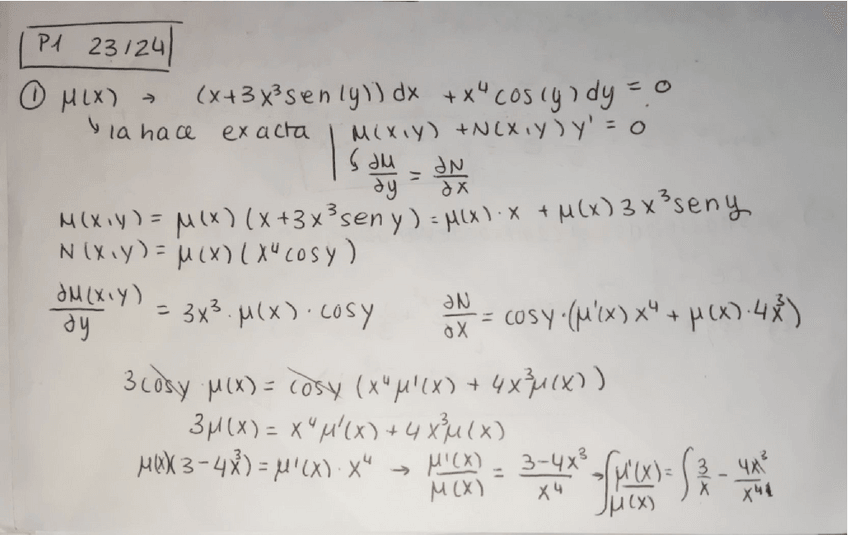 P1 23/24
① μ(x) → (x+3x³sen(y))dx + x⁴cos(y)dy = 0
↳ la hace exacta | M(x,y) + N(x,y)y' = 0
↳ ∂M/∂y = ∂N/∂x
M(x,y) = μ(x)(x+3x³sen y) = μ(x)·x + μ(x)3x³sen y
N(x,y) = μ(x)(x⁴cos y)
∂M(x,y)/∂y = 3x³·μ(x)·cos y   ∂N/∂x = cos y·(μ'(x)x⁴ + μ(x)·4x³)
3cos y·μ(x) = cos y (x⁴μ'(x) + 4x³μ(x))
3μ(x) = x⁴μ'(x) + 4x³μ(x)
μ(x)(3-4x³) = μ'(x)·x⁴ → μ'(x)/μ(x) = (3-4x³)/x⁴ → ∫μ'(x)/μ(x) = ∫3/x - 4x³/x⁴